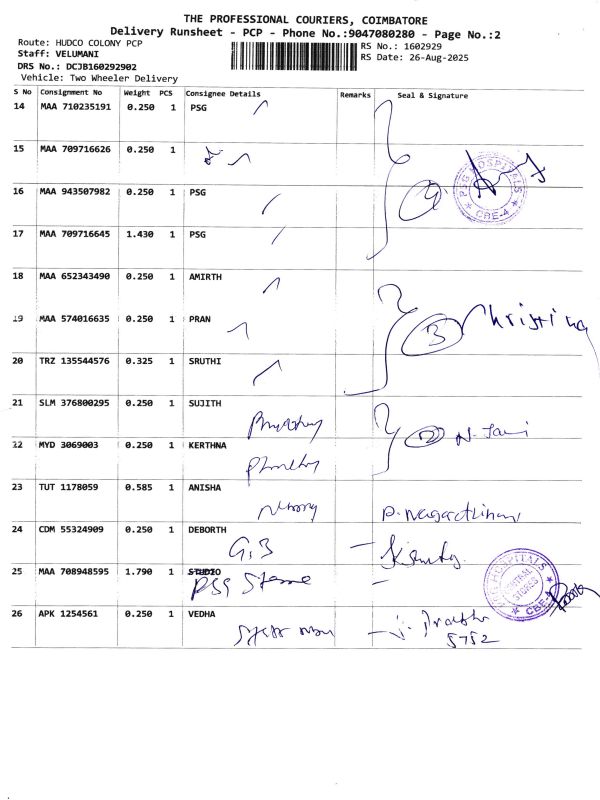 THE PROFESSIONAL COURIERS, COIMBATORE
Delivery Runsheet - PCP - Phone No.:9047080280 - Page No.:2
Route: HUDCO COLONY PCP
Staff: VELUMANI
DRS No.: DCJB160292902
Vehicle: Two Wheeler Delivery
RS No.: 1602929
RS Date: 26-Aug-2025
S No Consignment No Weight PCS Consignee Details Remarks Seal & Signature
14 MAA 710235191 0.250 1 PSG
15 MAA 709716626 0.250 1
16 MAA 943507982 0.250 1 PSG
PSG HOSPITALS
CBE-4
17 MAA 709716645 1.430 1 PSG
18 MAA 652343490 0.250 1 AMIRTH
19 MAA 574016635 0.250 1 PRAN
3 Christina
20 TRZ 135544576 0.325 1 SRUTHI
21 SLM 376800295 0.250 1 SUJITH
2 N. Jani
12 MYD 3069003 0.250 1 KERTHNA
23 TUT 1178059 0.585 1 ANISHA
24 CDM 55324909 0.250 1 DEBORTH
G.B
25 MAA 708948595 1.790 1 STUDIO
PSG Store
PSG HOSPITALS
CENTRAL STORES
CBE-4
26 APK 1254561 0.250 1 VEDHA
5752